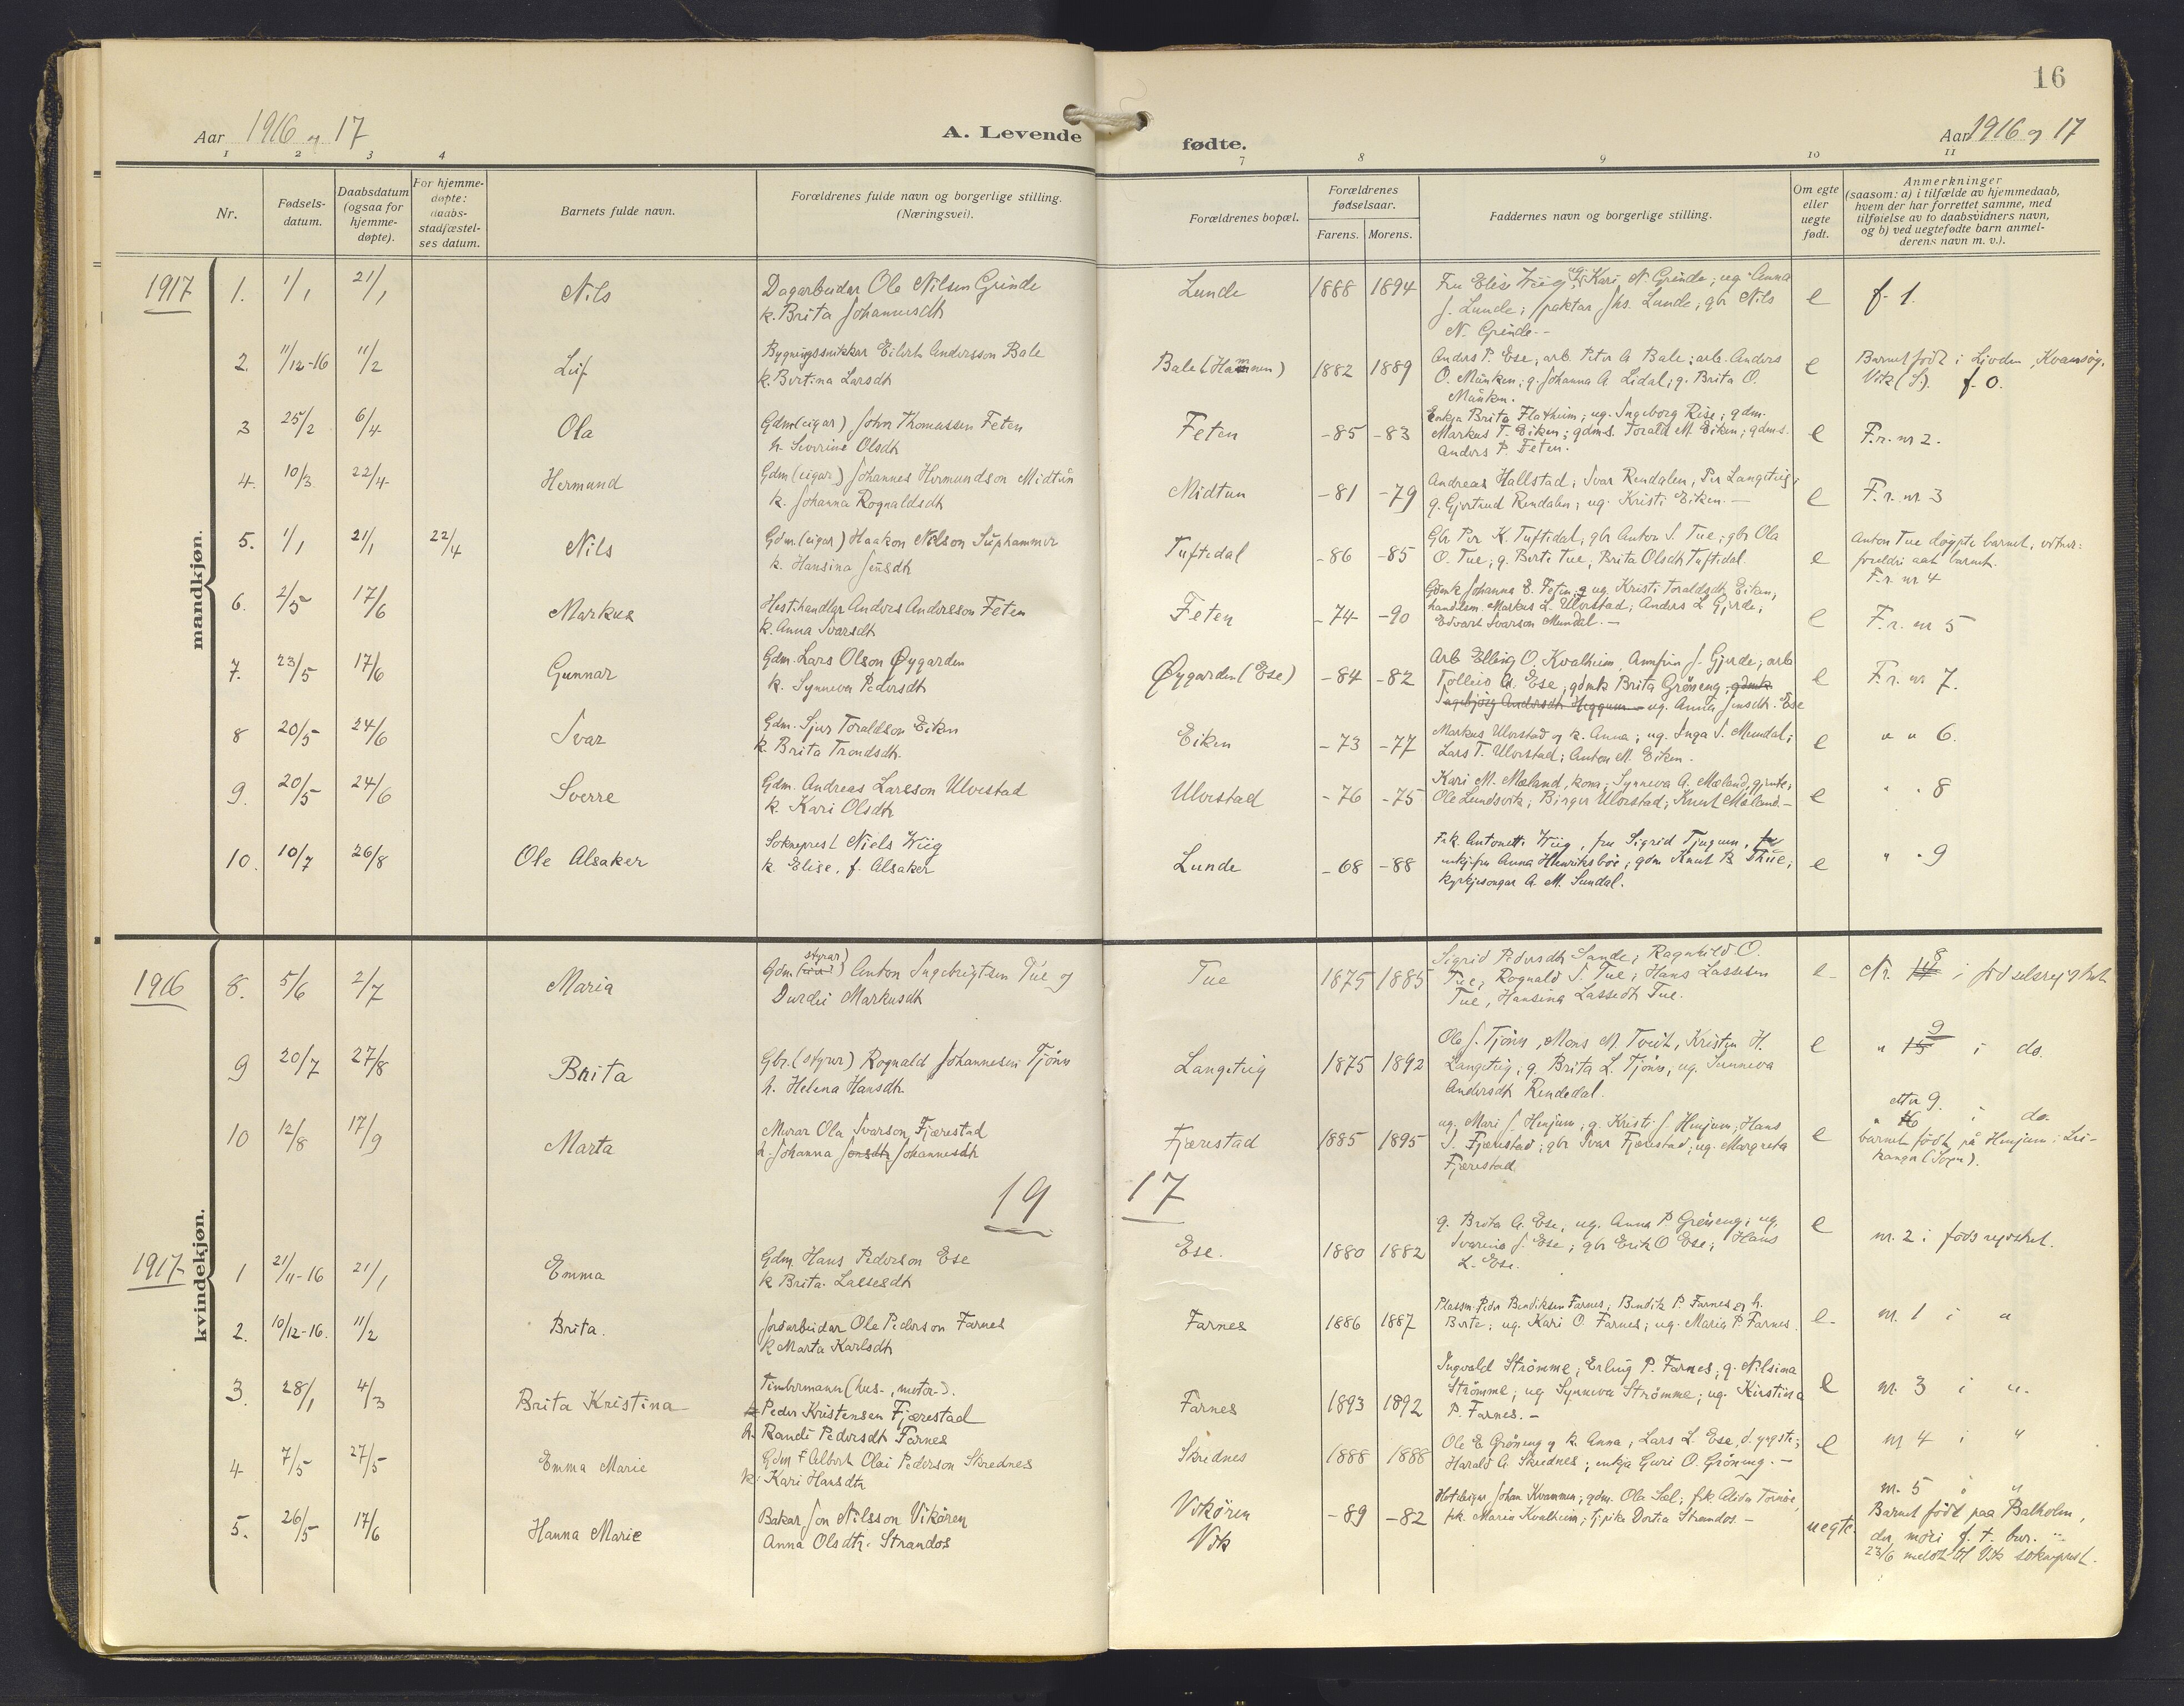 16
Aar 1916 og 17
A. Levende fødte.
Aar 1916 og 17
1 2 3 4 7 8 9 10 11
Nr.
Fødsels-
datum.
Daabsdatum
(ogsaa for
hjemme-
døpte).
For hjemme-
døpte:
daabs-
stadfæstel-
ses datum.
Barnets fulde navn.
Forældrenes fulde navn og borgerlige stilling.
(Næringsvei).
Forældrenes bopæl.
Forældrenes
fødselsaar.
Farens. Morens.
Faddernes navn og borgerlige stilling.
Om egte
eller
uegte
født.
Anmerkninger
(saasom: a) i tilfælde av hjemmedaab,
hvem der har forrettet samme, med
tilføielse av to daabsvidners navn,
og b) ved uegtefødte barn anmel-
derens navn m. v.).
mandkjøn.
1917 1. 1/1 21/1 Nils
Dagarbeidar Ole Nilsen Grinde
k. Brita Johannesdtr
Lunde 1888 1894
Fru Elise Wiig, Kari N. Grinde; ug. Anna
J. Lunde; Jhs. Lunde; gbr Nils
N. Grinde.-
e f. 1.
2. 11/12-16 11/2 Leif
Bygningssnikkar Eilert Andersson Bale
k. Bertina Larsdtr
Bale (Hamnen) 1882 1889
Anders P. Ese; arb. Peter A Bale; arb. Anders
O. Munken; g. Johanna A Lidal; g. Brita O.
Munken.
e Barnet født i Ljoden, Kvamsøy,
Vik (S.). f. 0.
3 25/2 6/4 Ola
Gdm(eigar) John Thomassen Feten
h. Severine Olsdtr
Feten -85 -83
Enkja Brita Flatheim; ug. Ingeborg Rise; gdm.
Markus T. Eiken; gdms. Torald M. Eiken; gdms.
Anders P. Feten.
e F.r. nr 2.
4. 10/3 22/4 Hermund
Gdm (eigar) Johannes Hermundson Midtun
k. Johanna Rognaldsdtr
Midtun -81 -79
Andreas Hallstad; Ivar Rendalen, Per Langeteig;
g. Gjertrud Rendalen; ug. Kristi Eiken.-
e F.r. nr 3
5. 1/1 21/1 22/4 Nils
Gdm.(eigar) Haakon Nilson Suphammer
k. Hansina Jensdtr
Tuftedal -86 -85
Gbr Per K. Tuftedal; gbr Anton S. Tue; gbr Ola
O. Tue; g. Berte Tue; Brita Olsdtr Tuftedal.
e Anton Tue døypte barnet, vitner:
foreldri aat barnet.
F.r. nr 4
6. 2/5 17/6 Markus
Hestehandlar Anders Andersson Feten
k. Anna Ivarsdtr
Feten -74 -90
Gdmk Johanne E. Feten; ug. Kristi Toraldsdtr Eiken;
handlsm. Markus L. Ulvestad; Anders L Gjerde;
Edvart Ivarson Mundal.-
e F.r. nr 5
7. 23/5 17/6 Gunnar
Gdm. Lars Olson Øygarden
k. Synneva Pedersdtr
Øygarden (Ese) -84 -82
Arb Elling O. Kvalheim, Annfin J. Gjerde; arb
Tolleiv A. Ese; gdmk Brita Grøneng; gdmk
Ingebjørg Andersdtr Heggum - ug. Anna Jensdtr. Ese
e F.r. nr 7.
8 20/5 24/6 Ivar
Gdm. Sjur Toraldson Eiken
k. Brita Trondsdtr.
Eiken -73 -77
Markus Ulvestad og k. Anna; ug. Inga S. Mundal;
Lars T. Ulvestad; Anton M. Eiken.
e " " 6.
9. 20/5 24/6 Sverre
Gdm. Andreas Larsson Ulvestad
k. Kari Olsdtr
Ulvestad -76 -75
Kari M. Mæland, kona; Synneva A. Mæland, gjente;
Ole Lundsvik; Birger Ulvestad; Knut Mæland.-
e " " 8
10. 10/7 26/8 Ole Alsaker
Sokneprest Niels Wiig
k. Elise, f. Alsaker
Lunde -68 -88
Frk. Antonette Wiig, fru Sigrid Tjugum,
enkjefru Anna Henriksbøe; gdm Knut B Thue;
kyrkjesongar A. M. Sundal.
e " " 9
kvindekjøn.
1916 8. 5/6 2/7 Maria
styrar)
Gdm Anton Ingebrigtsen Tue og
Durdei Markusdtr
Tue 1875 1885
Sigrid Pedersdtr Sande; Ragnhild O.
Tue; Rognald S. Tue; Hans Lassesen
Tue, Hansina Lassedtr Tue.
e- Nr. 8 i fødselsregistret
9 20/7 27/8 Brita
Gbr. (styrar) Rognald Johannesen Tjønn
h. Helena Hansdtr.
Langeteig 1875 1892
Ole J. Tjønn, Mons M. Tveit, Kristen H.
Langeteig; g. Brita L. Tjønn, ug. Sunneva
Andersdtr Rendedal.
e " 15 9 i do.
10 12/8 17/9 Marta
Murar Ola Ivarson Fjærestad
h. Johanna Jensdtr Johannesdtr
Fjærestad 1885 1895
ug. Mari J. Henjum; g. Kristi J. Henjum; Hans
S. Fjærestad; gbr Ivar Fjærestad; ug. Margreta
Fjærestad
e etter 9.
" 16 i do.
barnet født på Henjum i Lei-
kanger (Sogn).
19 17
1917 1 21/11-16 21/1 Emma
Gdm. Hans Pederson Ese
k Brita Lassesdtr
Ese. 1880 1882
g. Brita A. Ese, ug. Anna P. Grøneng; ug.
Ivarina J. Ese; gbr Erik O Ese; Hans
L. Ese.
e nr. 2 i føds registret.
2. 10/12-16. 11/2 Brita.
Jordarbeidar Ole Pederson Farnes
k Marta Karlsdtr
Farnes 1886 1887
Plassm. Peder Bendiksen Farnes; Bendik P. Farnes og h.
Berte; ug. Kari O. Farnes; ug. Maria P. Farnes.
e- nr. 1 i "
3. 28/1 4/3 Brita Kristina
Timbermann (hus-, motor-).
Peder Kristensen Fjærestad
h. Randi Pedersdtr Farnes
Farnes 1893 1892
Ingvald Strømme; Erling P. Farnes; g. Nilsina
Strømme; ug Synneva Strømme; ug. Kirstina
P. Farnes.-
e nr. 3 i "
4. 7/5 27/5 Emma Marie
Gdm f Albert Olai Pederson Skrednes
k. Kari Hansdtr
Skrednes 1888 1888
Ole E Grøneng og k. Anna; Lars L. Ese, d. yngste;
Harald A. Skrednes; enkja Guri O. Grøneng.-
e nr 4 i "
5. 26/5 17/6 Hanna Marie
Bakar Jon Nilsson Vikøren
Anna Olsdtr. Strandos
Vikøren
Vik
-89 -82
Hoteleigar Johan Kvammen; gdm. Ola Sæl; frk. Alida Tornøe,
frk. Maria Kvalheim; pike Dortea Strandos.-
uegte. nr. 5 i "
Barnet født paa Balholm,
der mori f. t. bur.
23/6 meldt til Vik sokneprest.